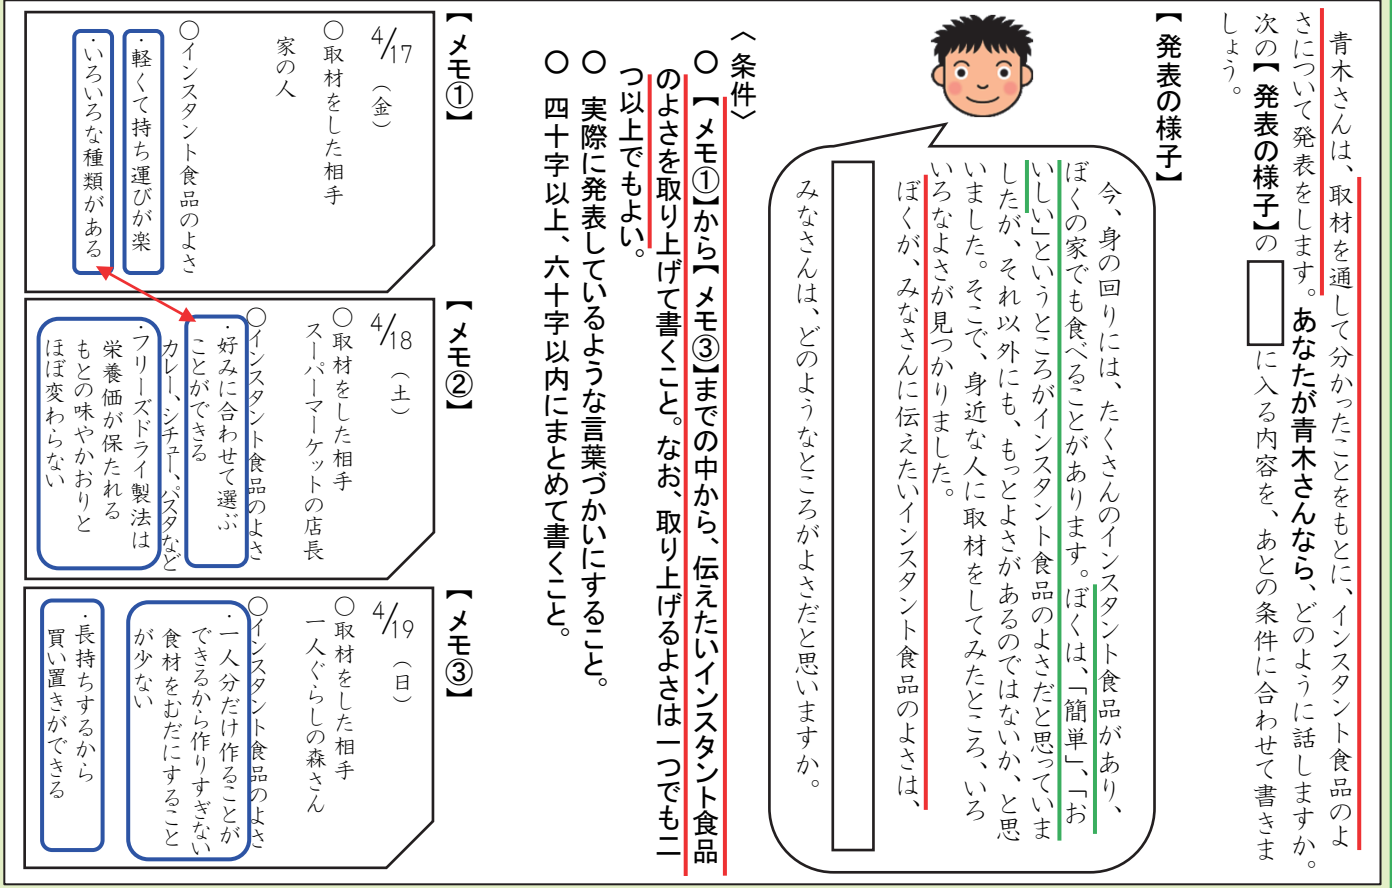 青木さんは、取材を通して分かったことをもとに、インスタント食品のよ
さについて発表をします。あなたが青木さんなら、どのように話しますか。
次の【発表の様子】の　　に入る内容を、あとの条件に合わせて書きま
しょう。
【発表の様子】
今、身の回りには、たくさんのインスタント食品があり、
ぼくの家でも食べることがあります。ぼくは、「簡単」、「お
いしい」というところがインスタント食品のよさだと思っていま
したが、それ以外にも、もっとよさがあるのではないか、と思
いました。そこで、身近な人に取材をしてみたところ、いろ
いろなよさが見つかりました。
ぼくが、みなさんに伝えたいインスタント食品のよさは、
みなさんは、どのようなところがよさだと思いますか。
〈条件〉
○　【メモ①】から【メモ③】までの中から、伝えたいインスタント食品
のよさを取り上げて書くこと。なお、取り上げるよさは一つでも二
つ以上でもよい。
○　実際に発表しているような言葉づかいにすること。
○　四十字以上、六十字以内にまとめて書くこと。
【メモ①】
4/17（金）
○取材をした相手
家の人
○インスタント食品のよさ
・軽くて持ち運びが楽
・いろいろな種類がある
【メモ②】
4/18（土）
○取材をした相手
スーパーマーケットの店長
○インスタント食品のよさ
・好みに合わせて選ぶ
ことができる
カレー、シチュー、パスタなど
・フリーズドライ製法は
栄養価が保たれる
もとの味やかおりと
ほぼ変わらない
【メモ③】
4/19（日）
○取材をした相手
一人ぐらしの森さん
○インスタント食品のよさ
・一人分だけ作ることが
できるから作りすぎない
食材をむだにすること
が少ない
・長持ちするから
買い置きができる